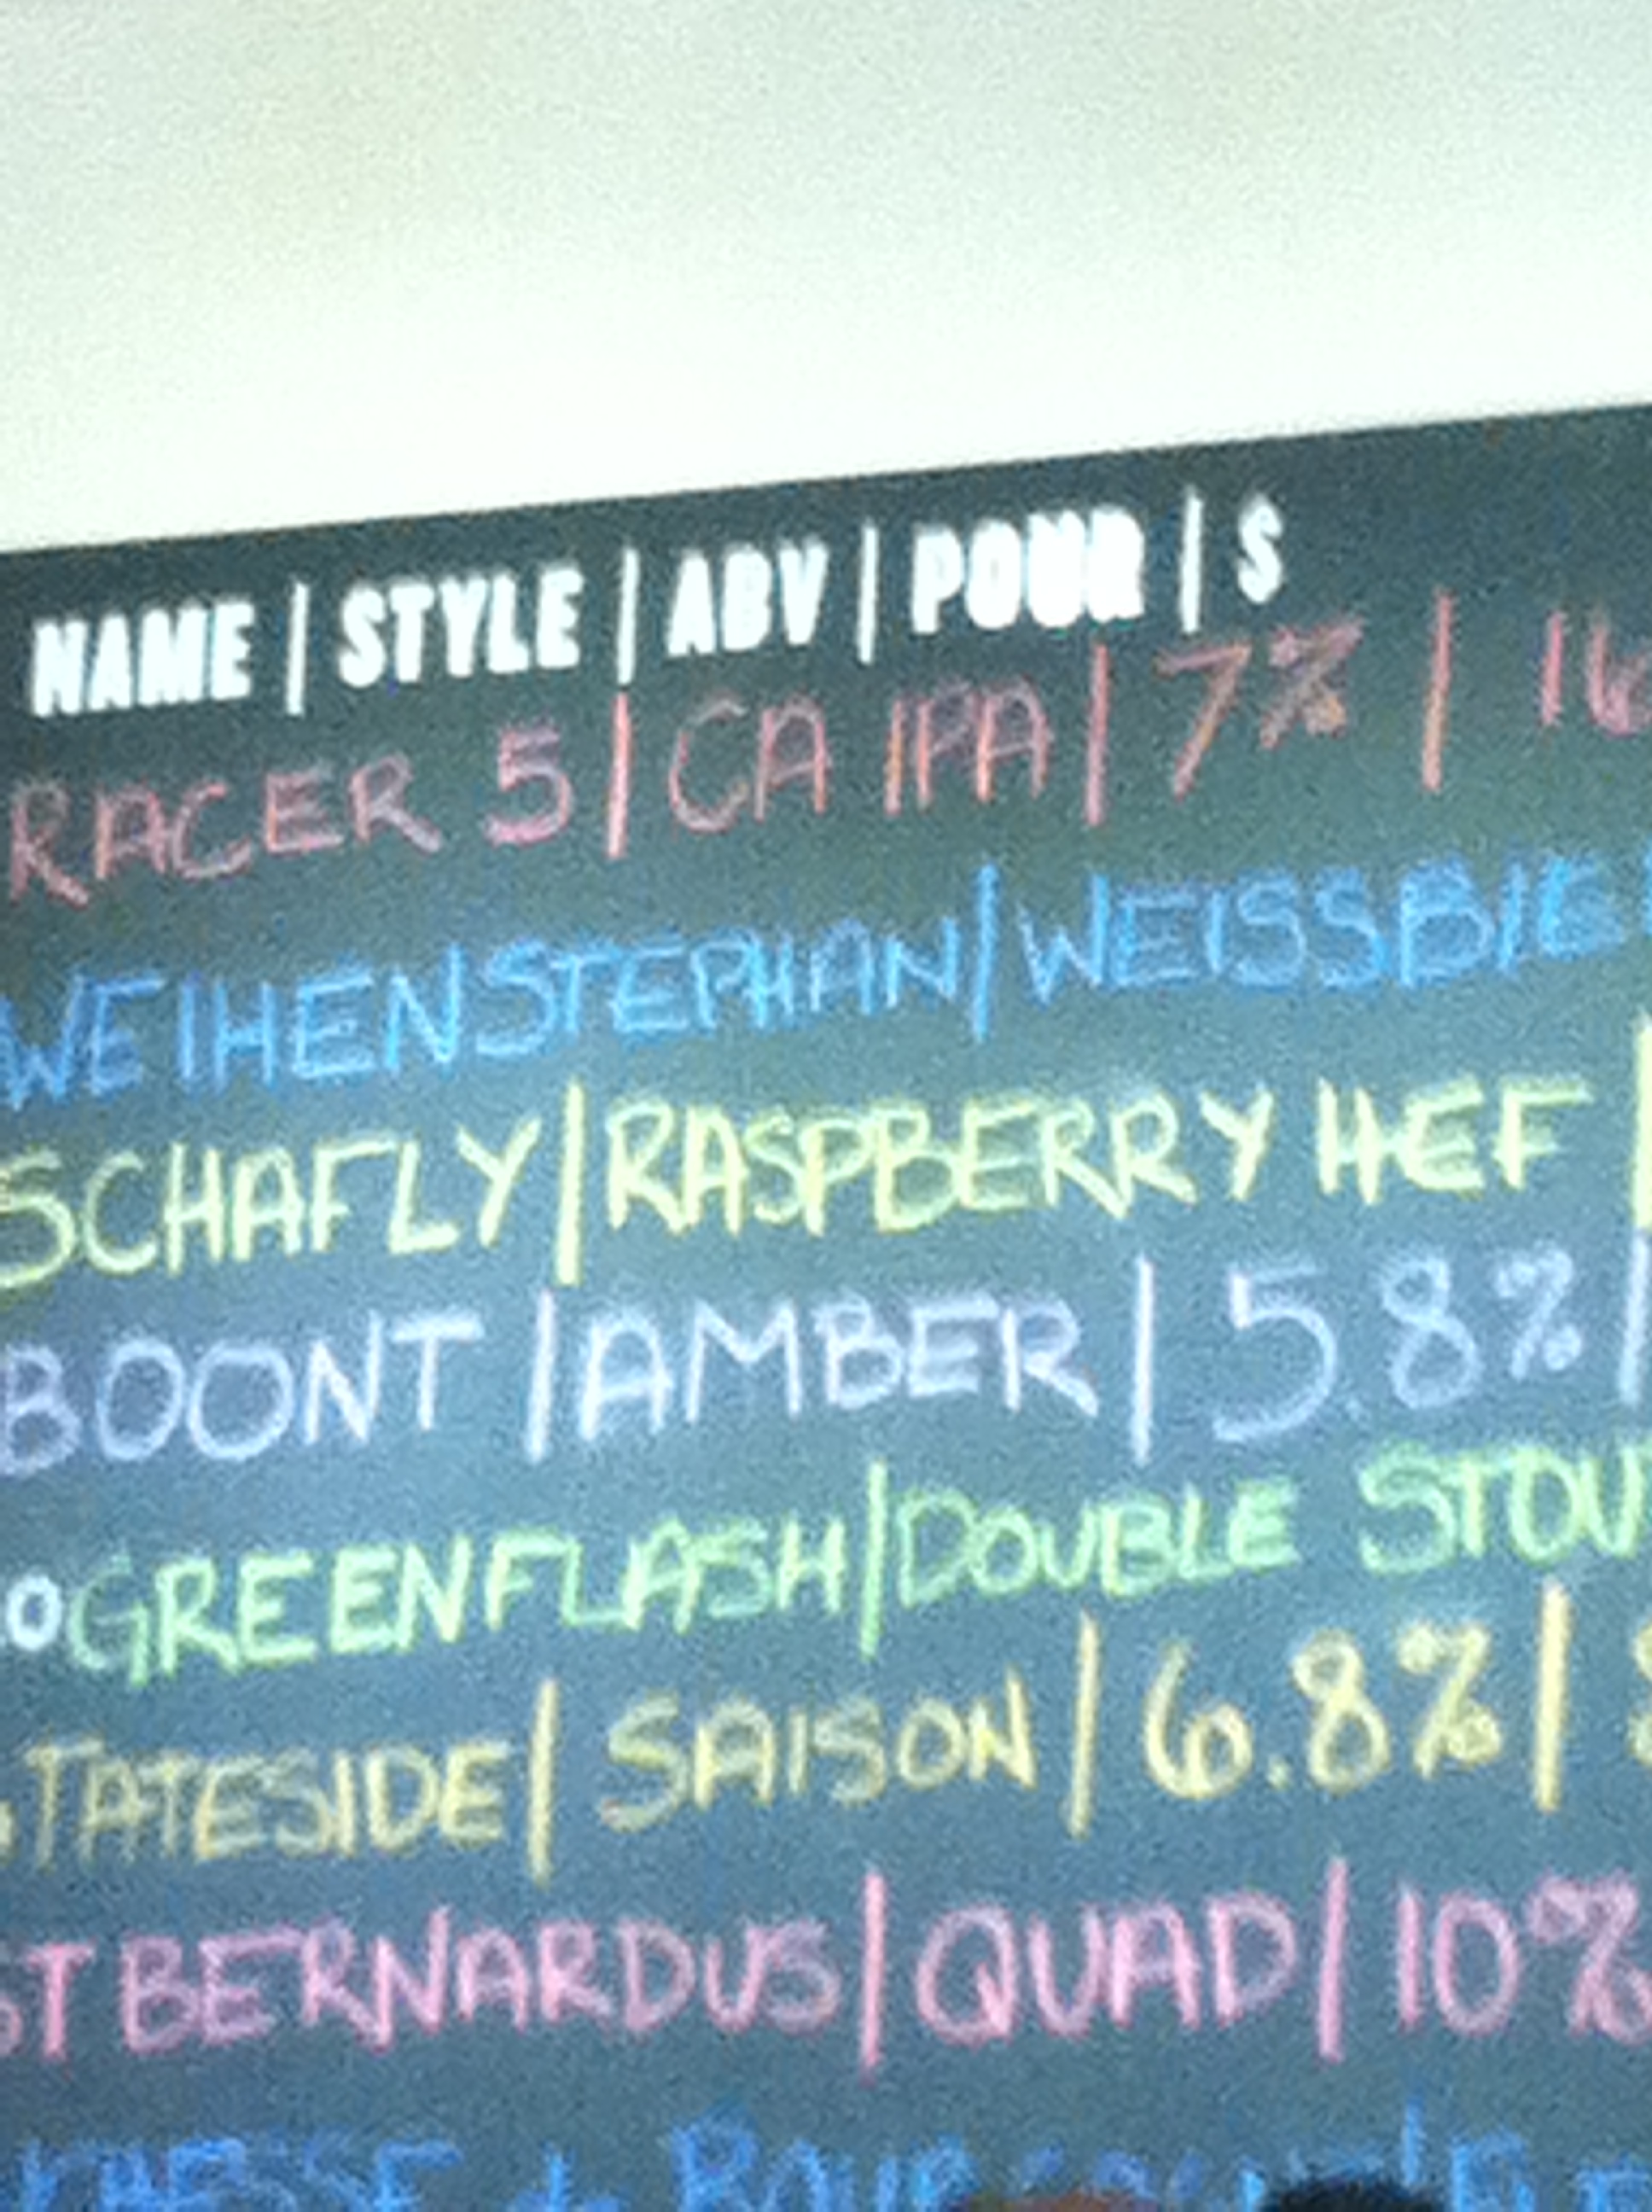 NAME | STYLE | ABV | POUR | $
RACER 5 | CA IPA | 7% | 16
WEIHENSTEPHAN | WEISSBIE
SCHAFLY | RASPBERRY HEF |
BOONT | AMBER | 5.8% |
0 GREENFLASH | DOUBLE STOU
STATESIDE | SAISON | 6.8% |
ST BERNARDUS | QUAD | 10%